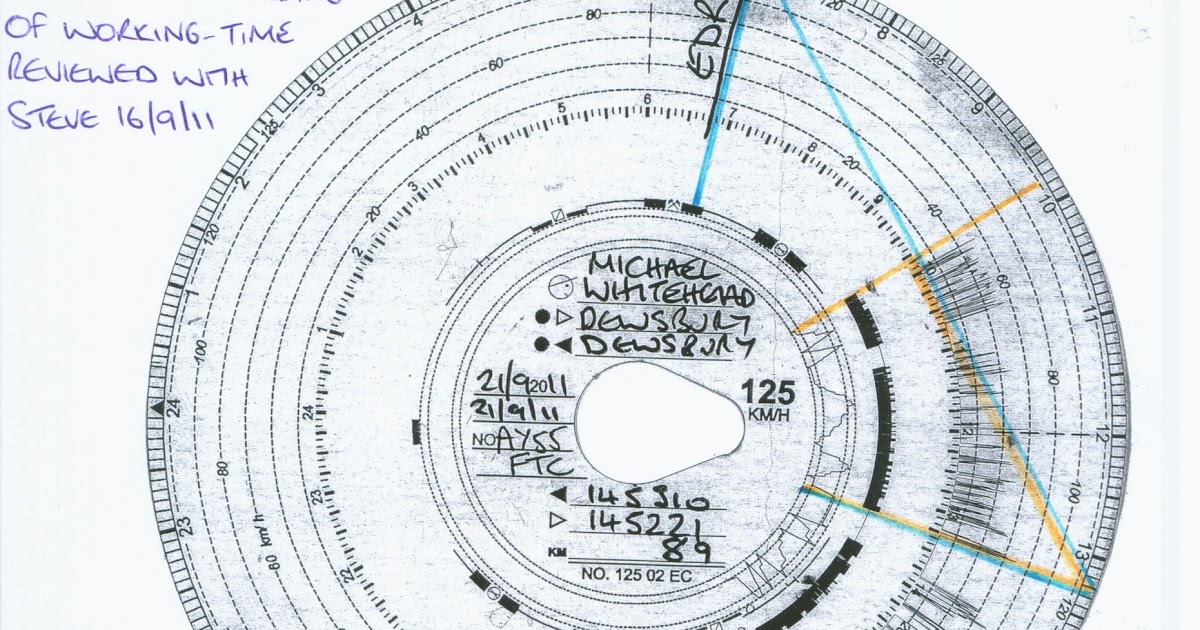 OF WORKING-TIME
REVIEWED WITH
STEVE 16/9/11
EDR
MICHAEL
WHITEHEAD
DEWSBURY
DEWSBURY
21/9 2011
21/9/11
NO AY55
FTC
125
KM/H
145310
145221
KM 89
NO. 125 02 EC
125
120
100
80
60 km/h
80
60
40
20
20
40
60
80
100
120
120
125
1
2
3
4
8
9
10
11
12
13
23
24
22
23
24
1
2
3
4
5
6
7
8
9
12